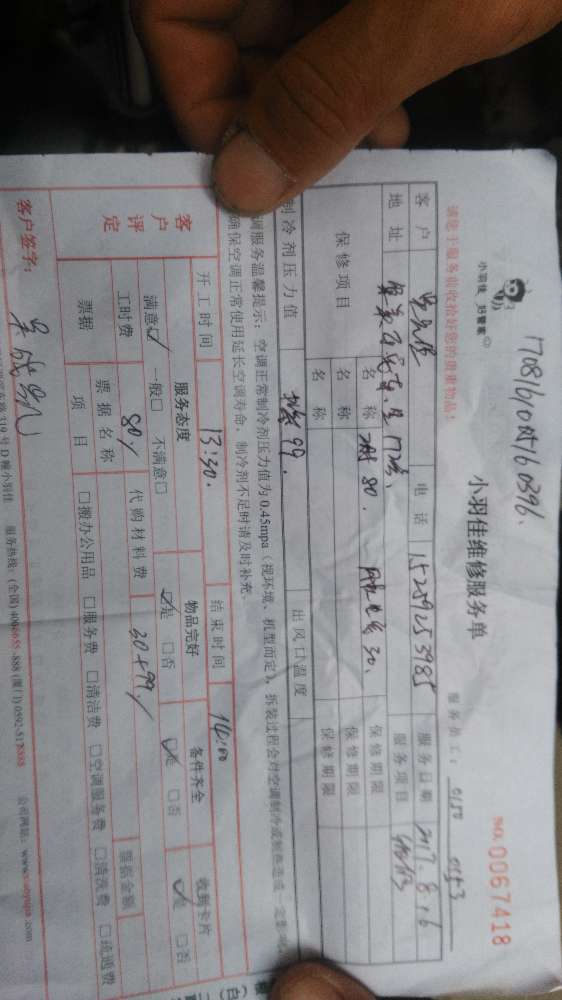 小羽佳 好管家
小羽佳维修服务单
NO.0067418
请您于服务前收拾好您的贵重物品!
服务员工: 0150 0153
客户 电话 15259253985 服务日期 2017.8.16
地址 服务项目
保修项目 名称 80. 30. 保修期限
名称 保修期限
名称 保修期限
制冷剂压力值 99. 出风口温度
调服务温馨提示:空调正常制冷剂压力值为0.45mpa(视环境、机型而定),拆装过程会对空调制冷或制热造成一定影响
确保空调正常使用延长空调寿命,制冷剂不足时请及时补充。
开工时间 13:30. 结束时间 14:00
客户评定 服务态度 物品完好 备件齐全 收到卡片
满意☑ 一般□ 不满意□ ☑是 □否 ☑是 □否 ☑是 □否
工时费 80/ 代购材料费 30+99./
票据 票据名称 票据金额
项目 □搬办公用品 □服务费 □清洁费 □空调服务费 □清洗费 □疏通费
客户签字:
319号D幢小羽佳 服务热线:(全国)
公司网站: